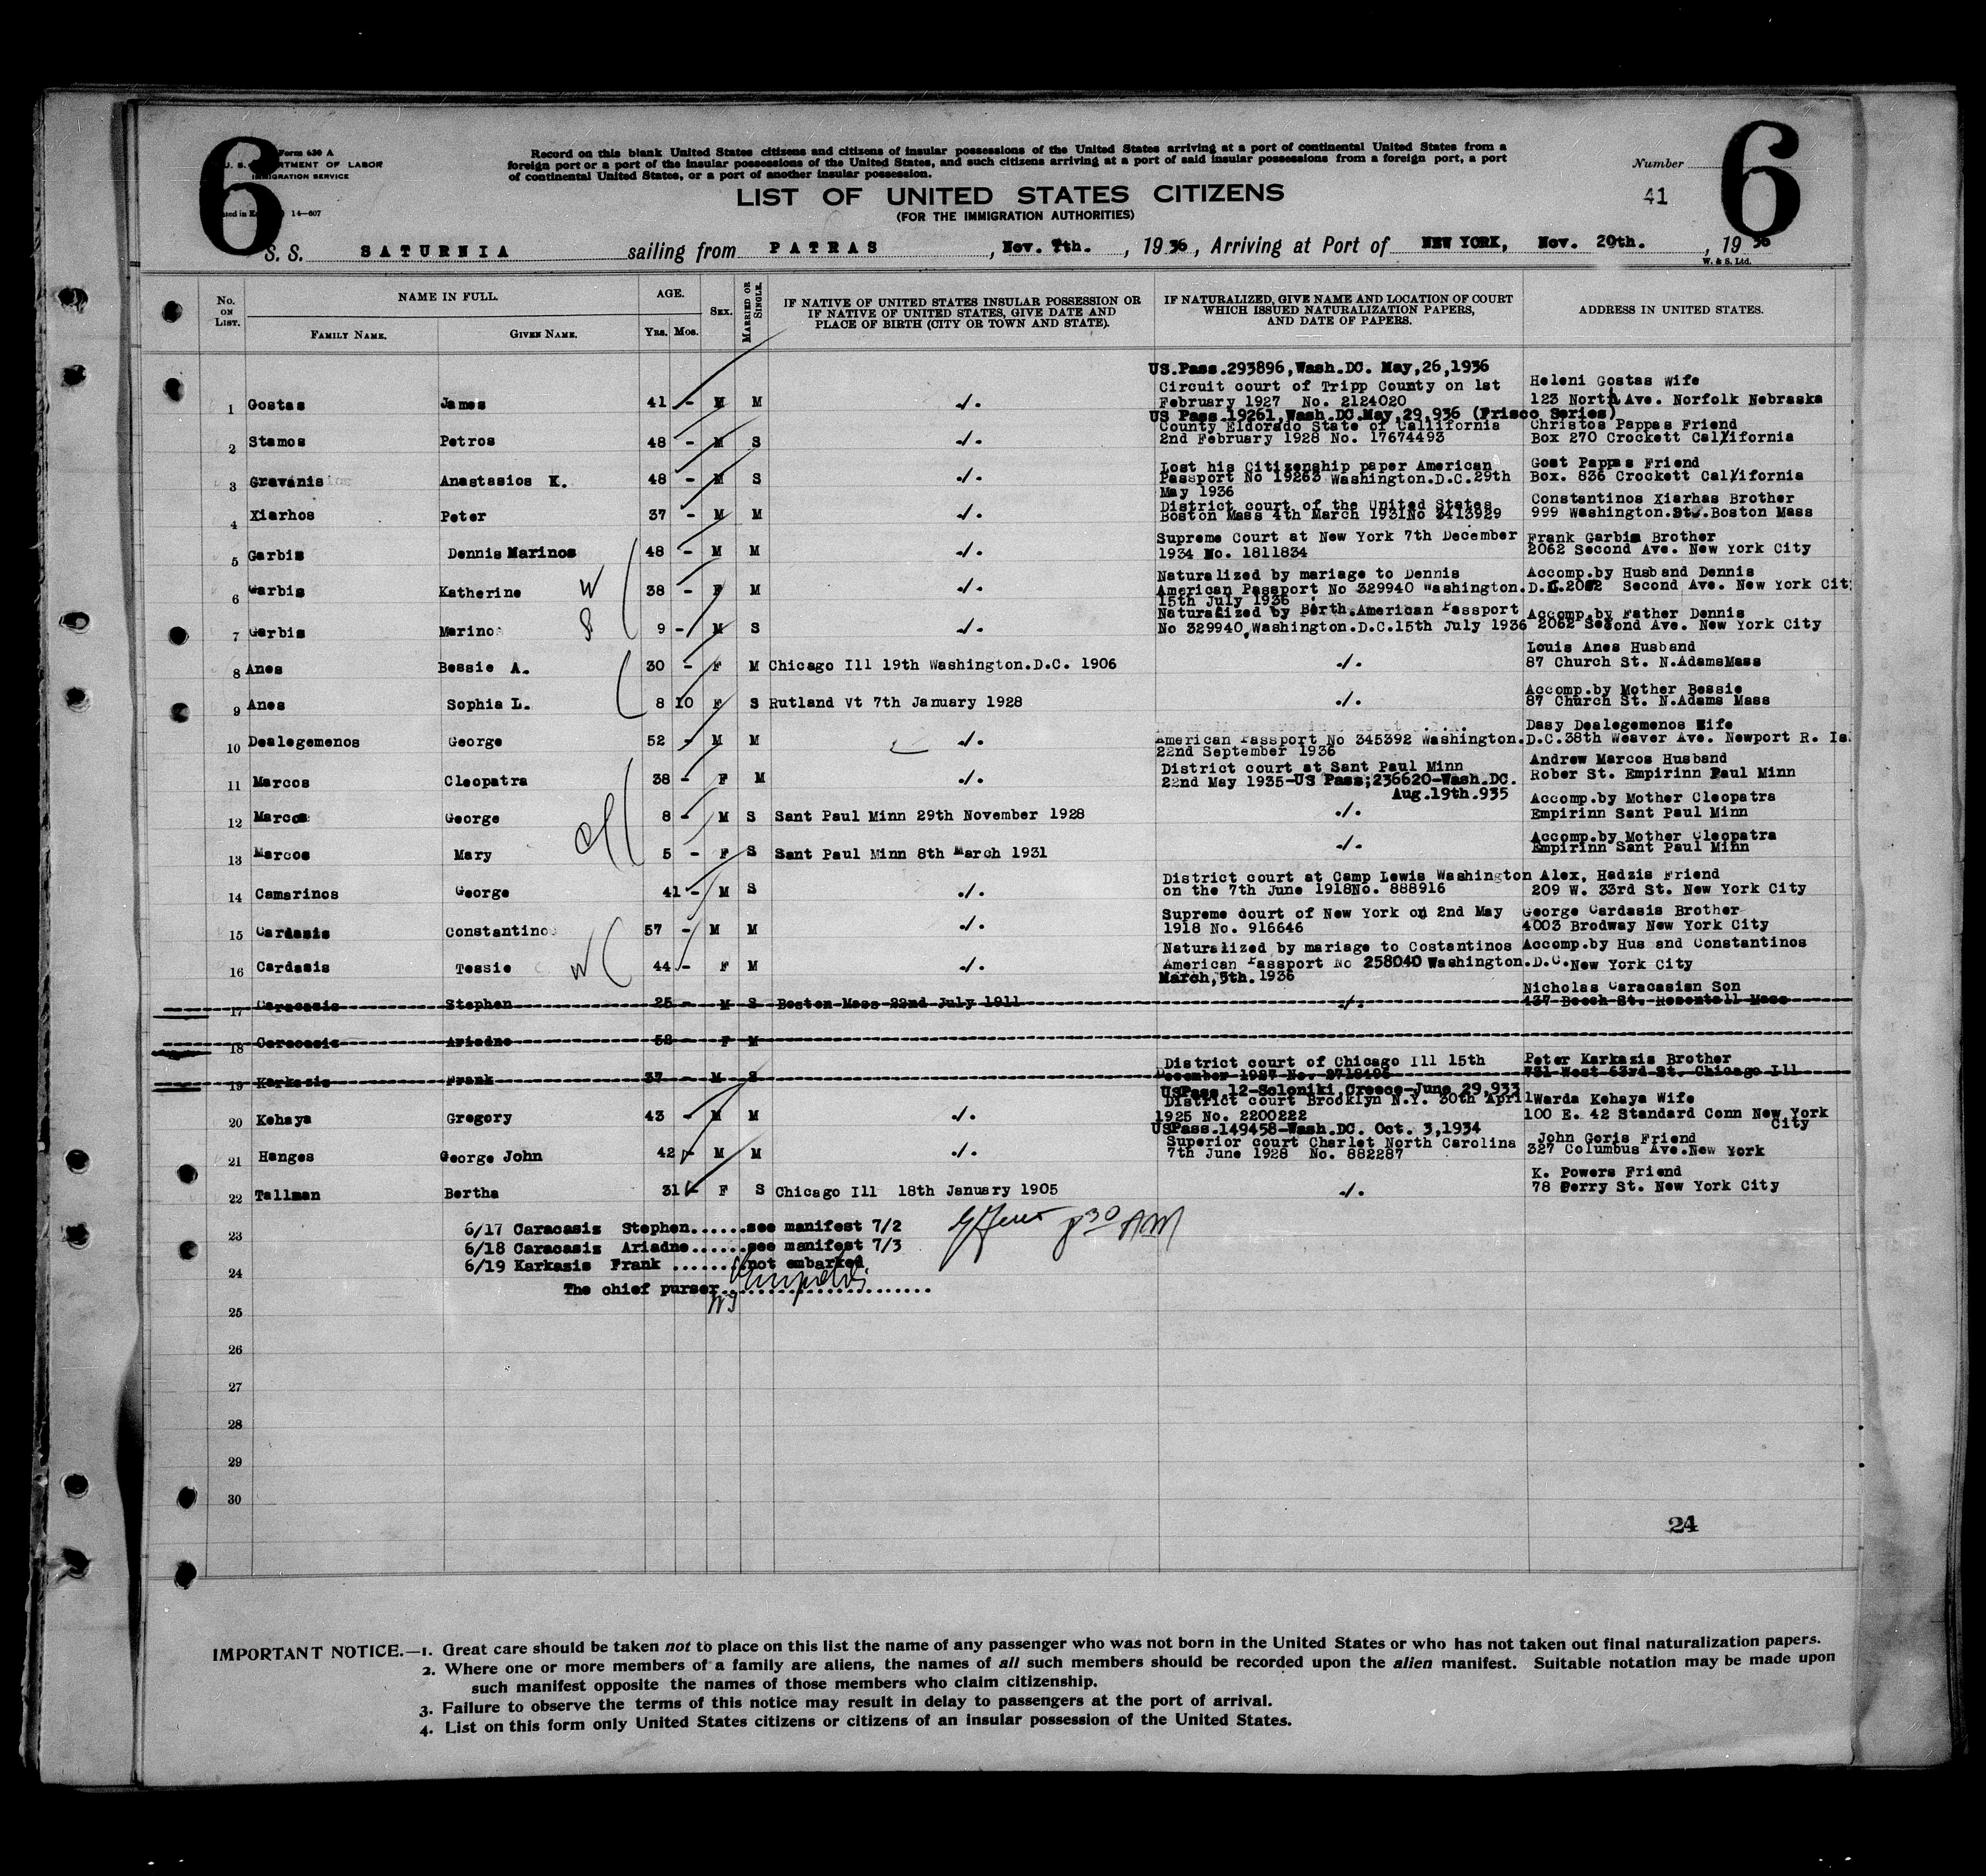 6
6
Form 630 A
U. S. DEPARTMENT OF LABOR
IMMIGRATION SERVICE
14—607
Record on this blank United States citizens and citizens of insular possessions of the United States arriving at a port of continental United States from a
foreign port or a port of the insular possessions of the United States, and such citizens arriving at a port of said insular possessions from a foreign port, a port
of continental United States, or a port of another insular possession.
Number
41
LIST OF UNITED STATES CITIZENS
(FOR THE IMMIGRATION AUTHORITIES)
S. S. SATURNIA sailing from PATRAS, Nov. 7th., 1936, Arriving at Port of NEW YORK, Nov. 20th., 1936
W. & S. Ltd.
No. ON LIST.
NAME IN FULL.
FAMILY NAME.
GIVEN NAME.
AGE.
YRS. MOS.
SEX.
MARRIED OR SINGLE.
IF NATIVE OF UNITED STATES INSULAR POSSESSION OR
IF NATIVE OF UNITED STATES, GIVE DATE AND
PLACE OF BIRTH (CITY OR TOWN AND STATE).
IF NATURALIZED, GIVE NAME AND LOCATION OF COURT
WHICH ISSUED NATURALIZATION PAPERS,
AND DATE OF PAPERS.
ADDRESS IN UNITED STATES.
US.Pass.293896,Wash.DC. May,26,1936
Circuit court of Tripp County on 1st Heleni Gostas Wife
1 Gostas James 41 - M M ./. February 1927 No. 2124020 123 North Ave. Norfolk Nebraska
US Pass.19261,Wash.DC.May,29,936 (Frisco Series)
County Eldorado State of Callifornia Christos Pappas Friend
2 Stamos Petros 48 - M S ./. 2nd February 1928 No. 17674493 Box 270 Crockett California
Lost his Citizenship paper American Gost Pappas Friend
3 Gravanis Anastasios K. 48 - M S ./. Passport No 19263 Washington.D.C.29th Box. 836 Crockett California
May 1936
District court of the United States Constantinos Xiarhas Brother
4 Xiarhos Peter 37 - M M ./. Boston Mass 4th March 1931No 3413929 999 Washington.St.Boston Mass
Supreme Court at New York 7th December Frank Garbis Brother
5 Garbis Dennis Marinos 48 - M M ./. 1934 No. 1811834 2062 Second Ave. New York City
Naturalized by mariage to Dennis Accomp.by Husband Dennis
6 Garbis Katherine W 38 - F M ./. American Passport No 329940 Washington.D.C.2062 Second Ave. New York Cit
15th July 1936
Naturalized by Birth.American Passport Accomp.by Father Dennis
7 Garbis Marinos S 9 - M S ./. No 329940,Washington.D.C.15th July 1936 2062 Second Ave. New York City
Louis Anes Husband
8 Anes Bessie A. 30 - F M Chicago Ill 19th Washington.D.C. 1906 ./. 87 Church St. N.AdamsMass
Accomp.by Mother Bessie
9 Anes Sophia L. 8 10 F S Rutland Vt 7th January 1928 ./. 87 Church St. N.Adams Mass
Dasy Dealegemenos Wife
10 Dealegemenos George 52 - M M ./. American Passport No 345392 Washington.D.C.38th Weaver Ave. Newport R. Is.
22nd September 1936
District court at Sant Paul Minn Andrew Marcos Husband
11 Marcos Cleopatra 38 - F M ./. 22nd May 1935-US Pass;236620-Wash.DC. Rober St. Empirinn Paul Minn
Aug.19th.935
Accomp.by Mother Cleopatra
12 Marcos George 8 - M S Sant Paul Minn 29th November 1928 ./. Empirinn Sant Paul Minn
Accomp.by Mother Cleopatra
13 Marcos Mary 5 - F S Sant Paul Minn 8th March 1931 ./. Empirinn Sant Paul Minn
District court at Camp Lewis Washington Alex, Hadzis Friend
14 Camarinos George 41 - M S ./. on the 7th June 1918No. 888916 209 W. 33rd St. New York City
Supreme court of New York on 2nd May George Cardasis Brother
15 Cardasis Constantinos 57 - M M ./. 1918 No. 916646 4003 Brodway New York City
Naturalized by mariage to Costantinos Accomp.by Hus and Constantinos
16 Cardasis Tessie W 44 - F M ./. American Passport No 258040 Washington.D.C.New York City
March,5th. 1936
Nicholas Caracasian Son
17 Caracasis Stephen 25 - M S Boston Mass 22nd July 1911 ./. 437 Beech St. Rosentall Mass
18 Caracasis Ariadne 58 - F M
District court of Chicago Ill 15th Peter Karkazis Brother
19 Karkasis Frank 37 - M S December 1927 No. 2718495 731 West 63rd St. Chicago Ill
USPass.12-Soloniki,Greece-June 29,933
District court Brooklyn N.Y. 30th April Warda Kehaya Wife
20 Kehaya Gregory 43 - M M ./. 1925 No. 2200222 100 E. 42 Standard Conn New York
City
USPass.149458-Wash.DC. Oct. 3,1934
Superior court Charlet North Carolina John Goris Friend
21 Hanges George John 42 - M M ./. 7th June 1928 No. 882287 327 Columbus Ave.New York
K. Powers Friend
22 Tallman Bertha 31 - F S Chicago Ill 18th January 1905 ./. 78 Perry St. New York City
23
6/17 Caracasis Stephen......see manifest 7/2
6/18 Caracasis Ariadne......see manifest 7/3
830 AM
24
6/19 Karkasis Frank .......not embarked
The chief purser
25
26
27
28
29
30
24
IMPORTANT NOTICE.—1. Great care should be taken not to place on this list the name of any passenger who was not born in the United States or who has not taken out final naturalization papers.
2. Where one or more members of a family are aliens, the names of all such members should be recorded upon the alien manifest. Suitable notation may be made upon
such manifest opposite the names of those members who claim citizenship.
3. Failure to observe the terms of this notice may result in delay to passengers at the port of arrival.
4. List on this form only United States citizens or citizens of an insular possession of the United States.